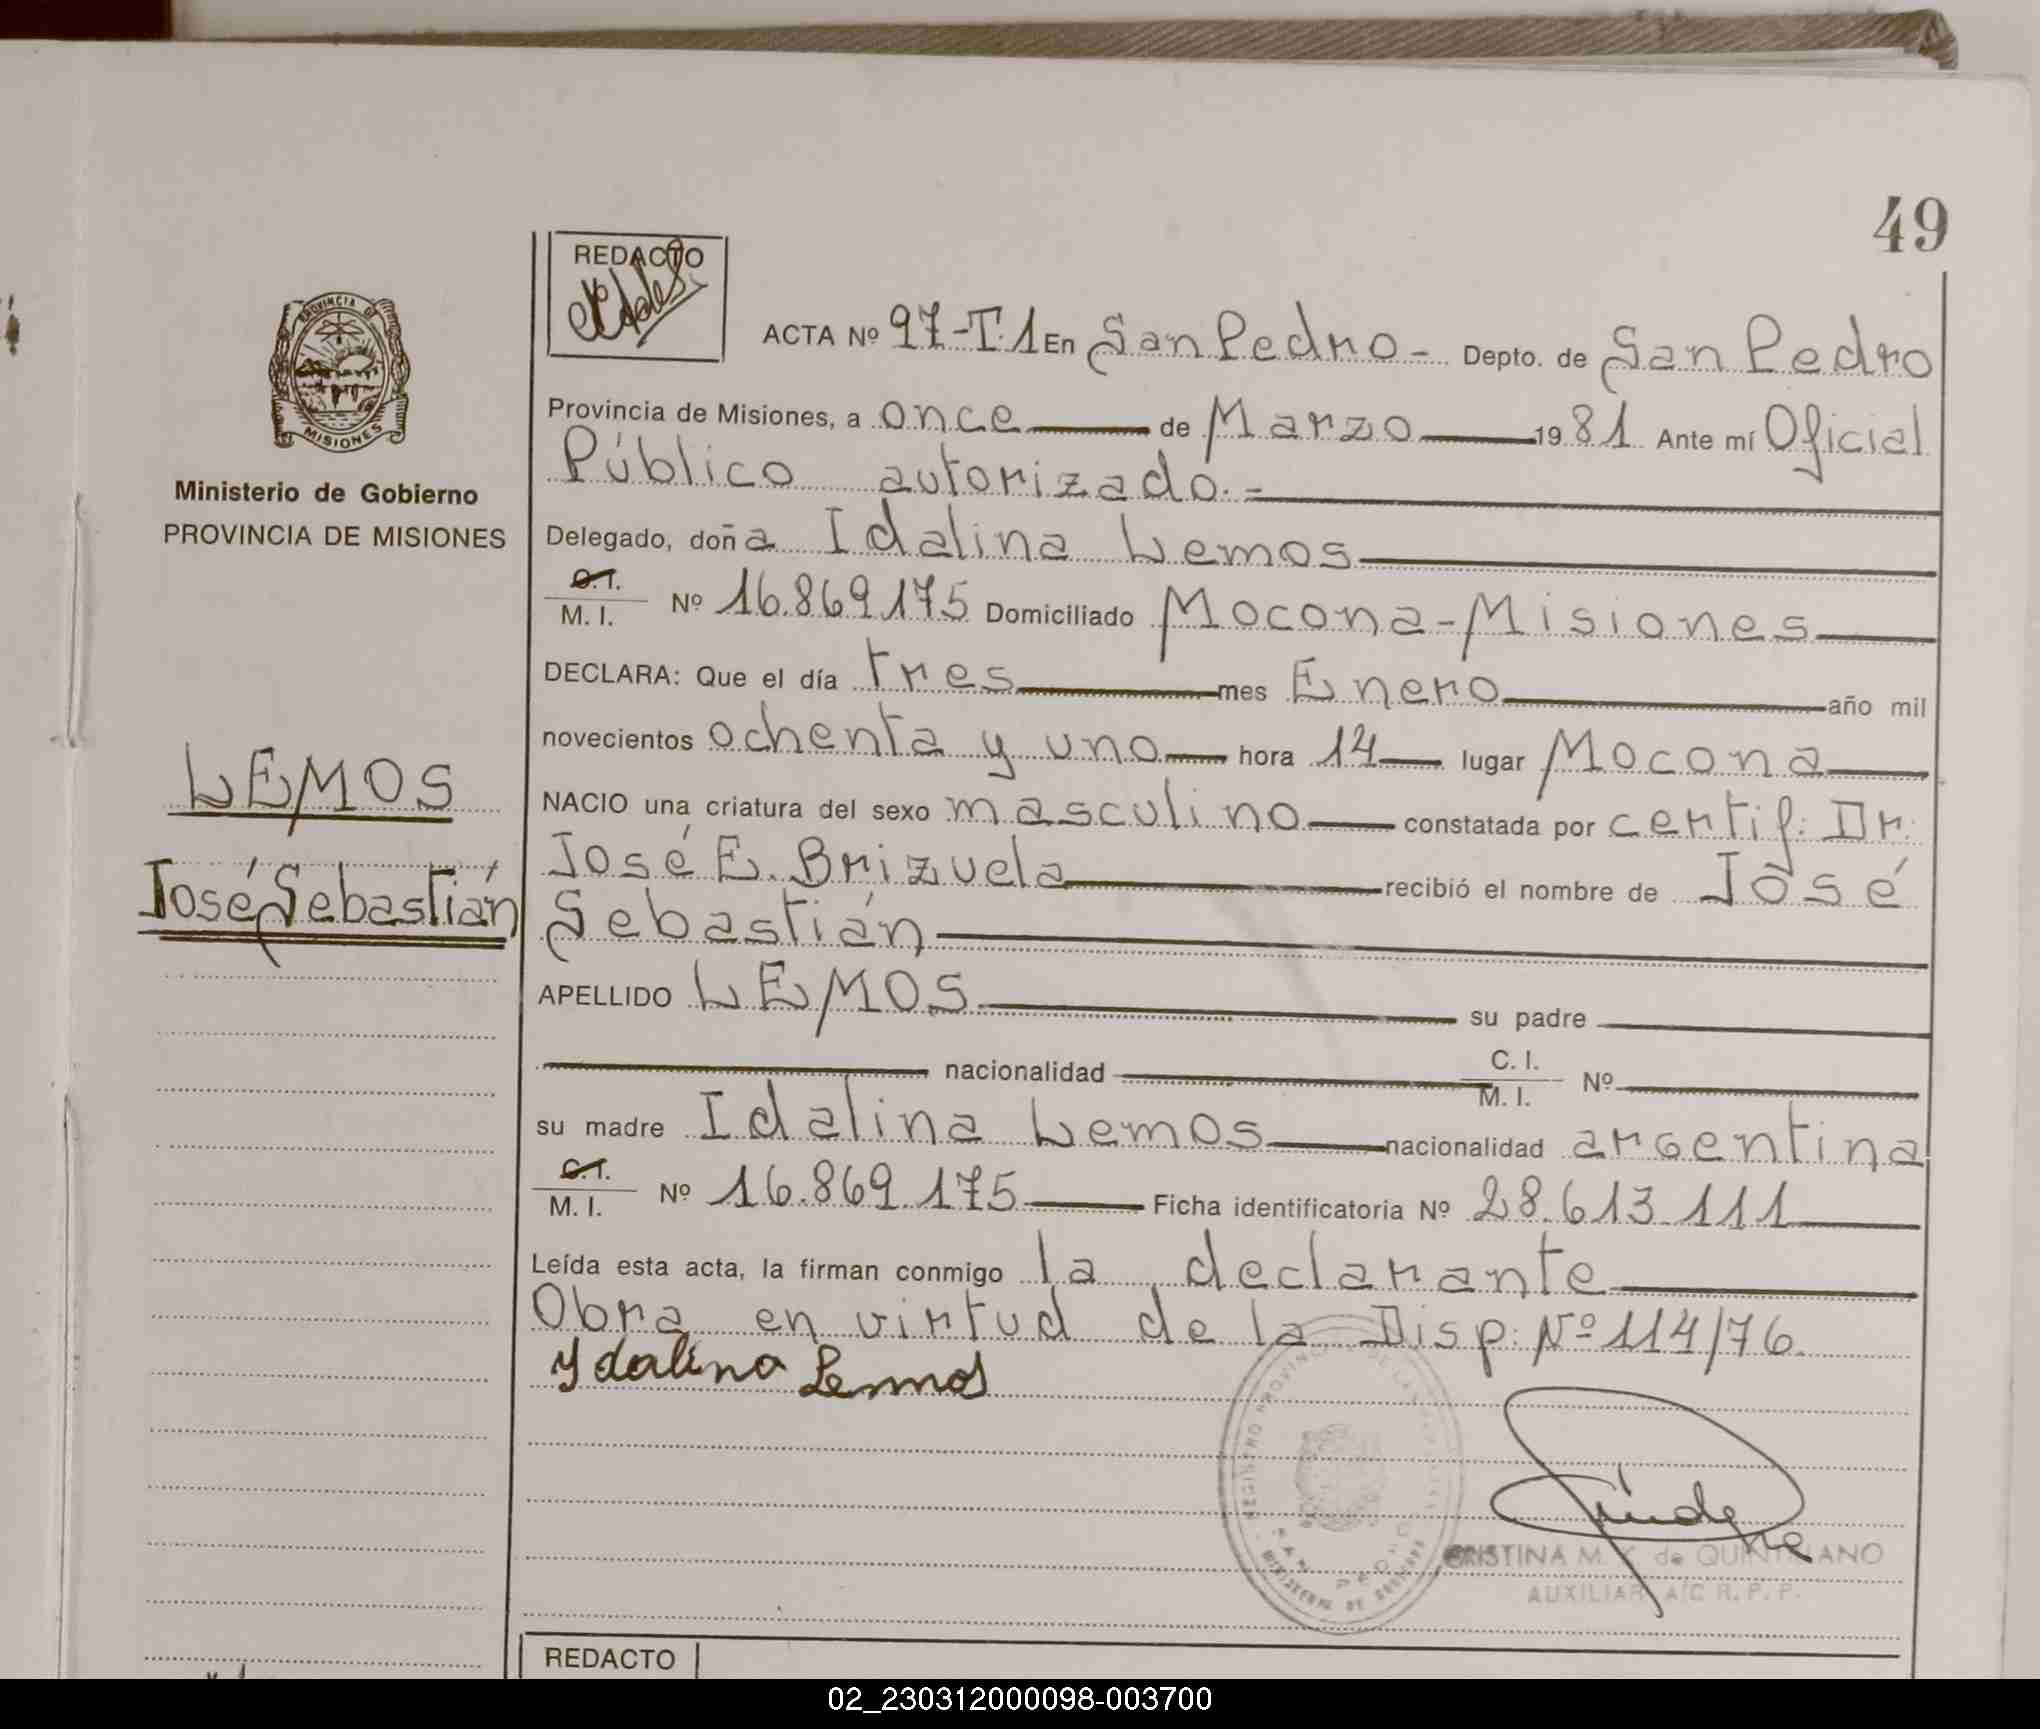 49
REDACTO
PROVINCIA DE
MISIONES
Ministerio de Gobierno
PROVINCIA DE MISIONES
LEMOS
José Sebastián
ACTA Nº 97-T.1 En San Pedro - Depto. de San Pedro
Provincia de Misiones, a once de Marzo 1981 Ante mí Oficial
Público autorizado.-
Delegado, doña Idalina Lemos
C.I.
M. I. Nº 16.869.175 Domiciliado Mocona-Misiones
DECLARA: Que el día tres mes Enero año mil
novecientos ochenta y uno hora 14 lugar Mocona
NACIO una criatura del sexo masculino constatada por certif. Dr.
José E. Brizuela recibió el nombre de José
Sebastián
APELLIDO LEMOS su padre
nacionalidad C. I.
M. I. Nº
su madre Idalina Lemos nacionalidad argentina
C.I.
M. I. Nº 16.869.175 Ficha identificatoria Nº 28.613.111
Leída esta acta, la firman conmigo la declarante
Obra en virtud de la Disp: Nº 114/76.
Ydalina Lemos
REGISTRO PROVINCIAL DE LAS
SAN PEDRO
MINISTERIO DE GOBIERNO
CRISTINA M. de QUINTILIANO
AUXILIAR A/C R. P. P.
REDACTO
02_230312000098-003700